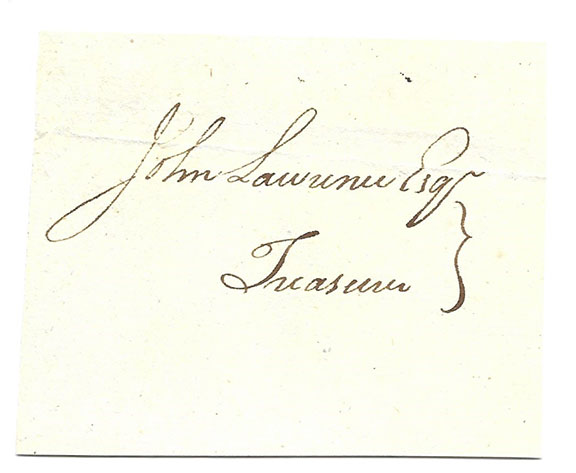 John Lawrence Esqr
Treasurer